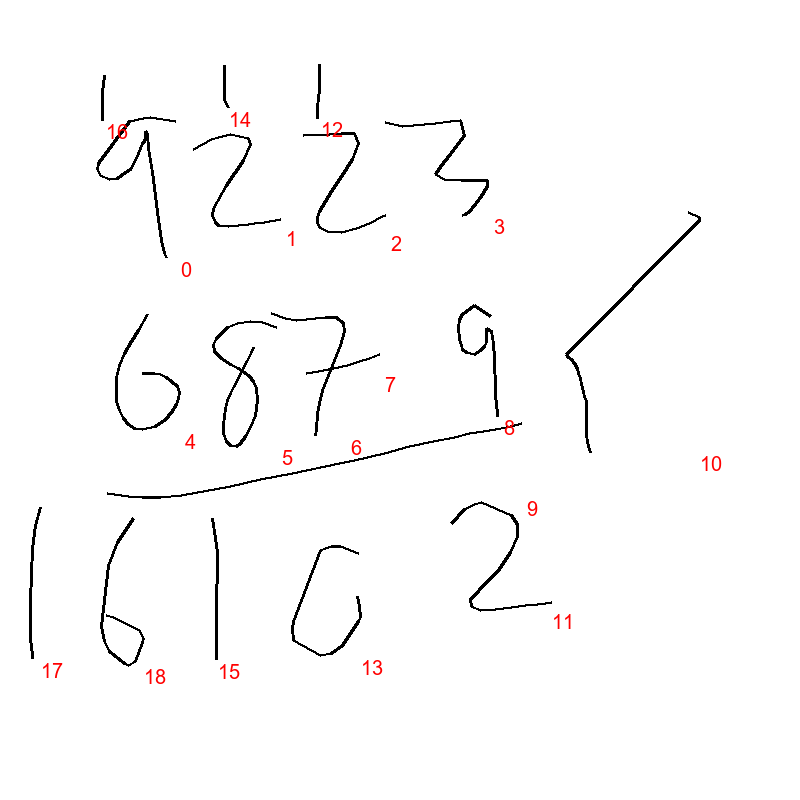 1 1 1
16 14 12
9 2 2 3
0 1 2 3
6 8 7 9
4 5 6 7 8 10
9
1 6 1 0 2
17 18 15 13 11